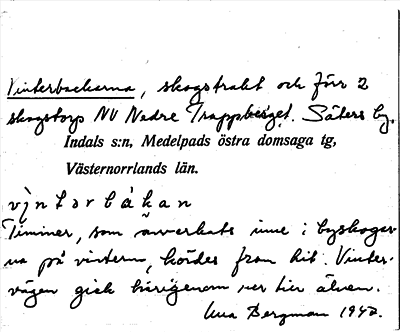 Vinterbackarna, skogstrakt och förr 2
skogstorp NV Nedre Trappberget. Säters by,
Indals s:n, Medelpads östra domsaga tg,
Västernorrlands län.
vìntərbákan
Timmer, som avverkats inne i byskogar-
na på vintern, kördes fram hit. Vinter-
vägen gick härigenom ner till älven.
Bergman 1942.